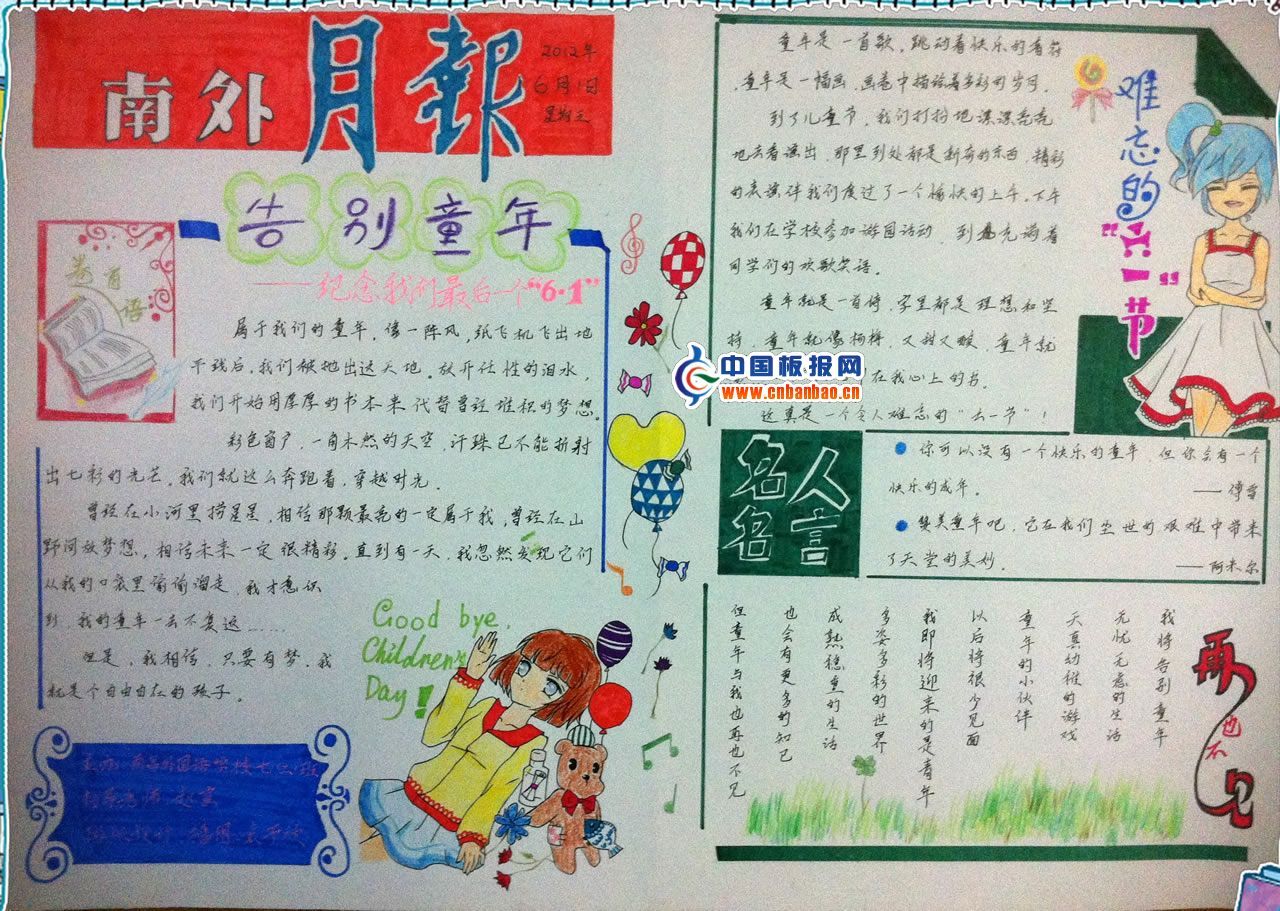 南外月報
2012年
6月1日
星期五
告别童年
——纪念我们最后一个“6·1”
卷首语
属于我们的童年，像一阵风，纸飞机飞出地
平线后，我们被抛出这天地。放开任性的泪水，
我们开始用厚厚的书本来代替曾经堆积的梦想。
彩色窗户，一角木然的天空，汗珠已不能折射
出七彩的光芒。我们就这么奔跑着，穿越时光。
曾经在小河里捞星星，相信那颗最亮的一定属于我，曾经在山
野间放梦想，相信未来一定很精彩。直到有一天，我忽然发现它们
从我的口袋里偷偷溜走，我才意识
到，我的童年一去不复返……
但是，我相信，只要有梦，我
就是个自由自在的孩子。
Good bye,
Children's
Day!
童年是一首歌，跳动着快乐的音符
，童年是一幅画，画卷中描绘着多彩的岁月。
到了儿童节，我们打扮地漂漂亮亮
地去看演出，那里到处都是新奇的东西，精彩
的表演伴我们度过了一个愉快的上午。下午
我们在学校参加游园活动，到处充满着
同学们的欢歌笑语。
童年就是一首诗，字里都是理想和坚
持，童年就像杨梅，又甜又酸，童年就
在我心上的书。
这真是一个令人难忘的“六一节”！
难忘的“六一”节
中国板报网
www.cnbanbao.cn
名人
名言
你可以没有一个快乐的童年，但你会有一个
快乐的成年。
——傅雷
赞美童年吧，它在我们尘世的艰难中带来
了天堂的美妙。
——阿米尔
再也不见
我将告别童年
无忧无虑的生活
天真幼稚的游戏
童年的小伙伴
以后将很少见面
我即将迎来的是青年
多姿多彩的世界
成熟稳重的生活
也会有更多的知己
但童年与我也再也不见